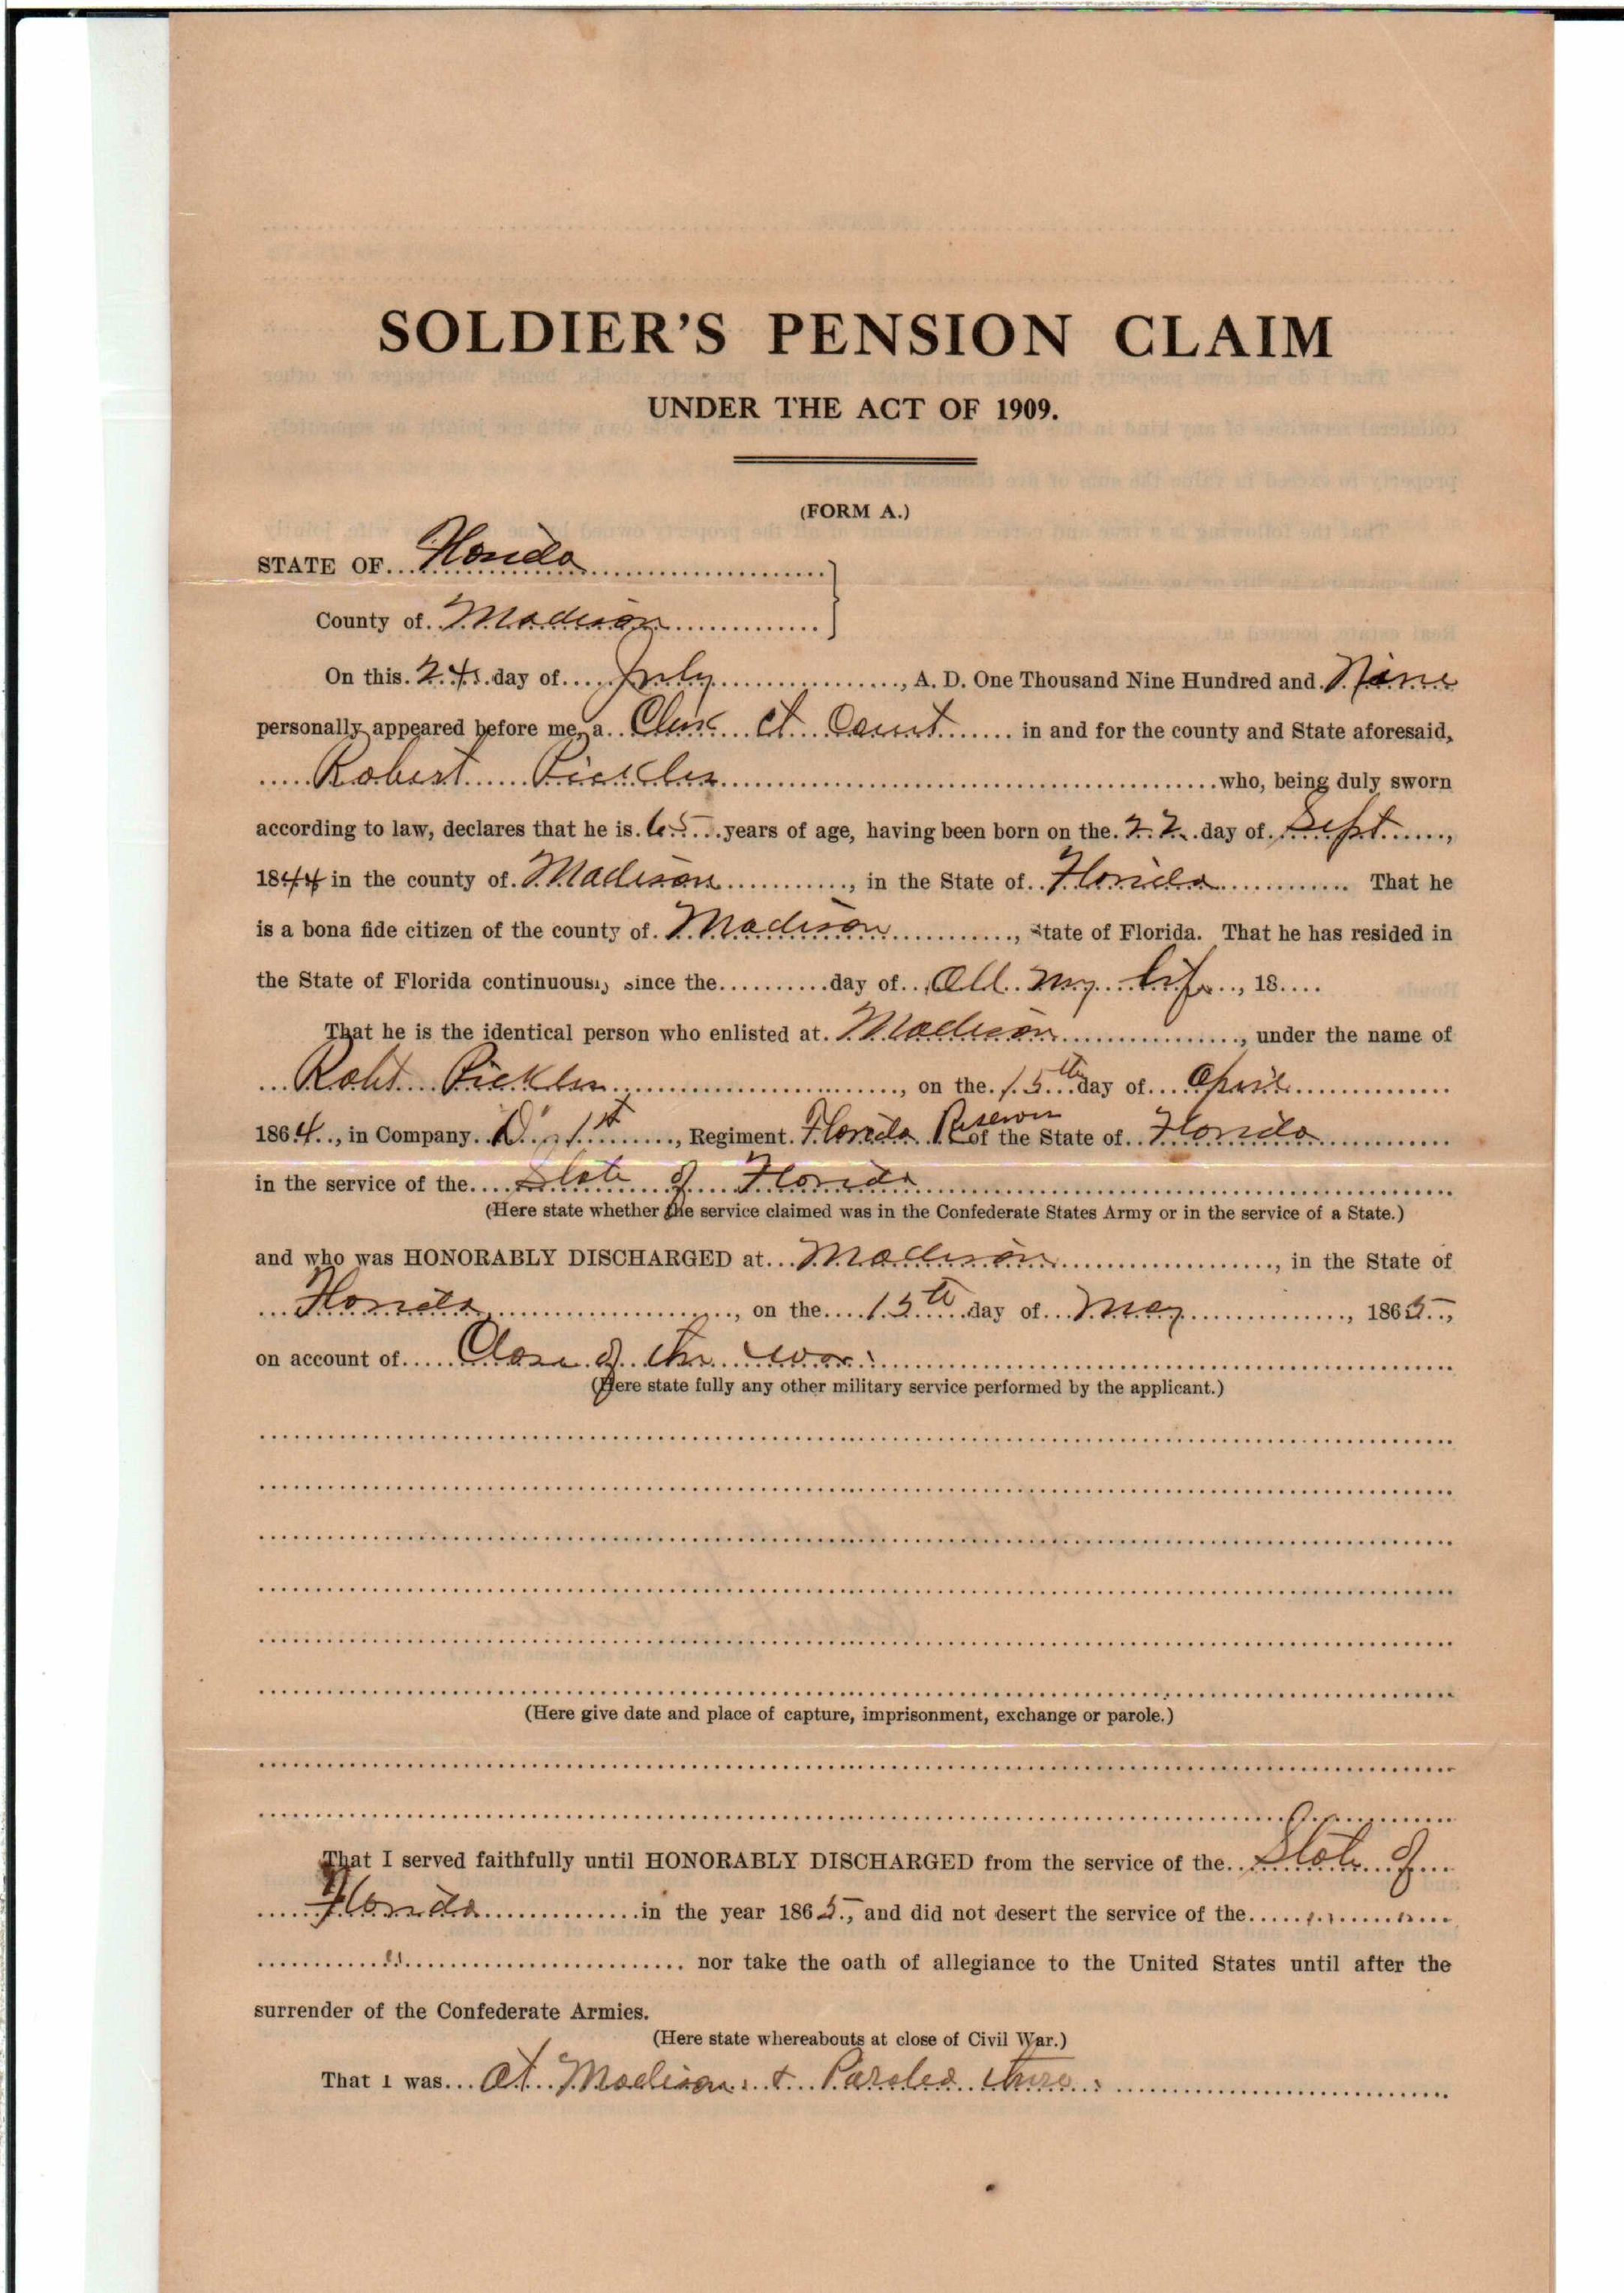 SOLDIER'S PENSION CLAIM
UNDER THE ACT OF 1909.
(FORM A.)
STATE OF Florida
County of Madison
On this 24 day of July, A. D. One Thousand Nine Hundred and Nine
personally appeared before me, a Clerk Ct. Court in and for the county and State aforesaid,
Robert Pickles who, being duly sworn
according to law, declares that he is 65 years of age, having been born on the 22 day of Sept,
1844 in the county of Madison, in the State of Florida. That he
is a bona fide citizen of the county of Madison, State of Florida. That he has resided in
the State of Florida continuously since the day of All my life, 18
That he is the identical person who enlisted at Madison, under the name of
Robt Pickles, on the 15th day of April
1864, in Company D. 1st, Regiment Florida Reserves of the State of Florida
in the service of the State of Florida
(Here state whether the service claimed was in the Confederate States Army or in the service of a State.)
and who was HONORABLY DISCHARGED at Madison, in the State of
Florida, on the 15th day of May, 1865,
on account of Close of the war.
(Here state fully any other military service performed by the applicant.)
(Here give date and place of capture, imprisonment, exchange or parole.)
That I served faithfully until HONORABLY DISCHARGED from the service of the State of
Florida in the year 1865, and did not desert the service of the " "
" nor take the oath of allegiance to the United States until after the
surrender of the Confederate Armies.
(Here state whereabouts at close of Civil War.)
That I was At Madison & Paroled there.